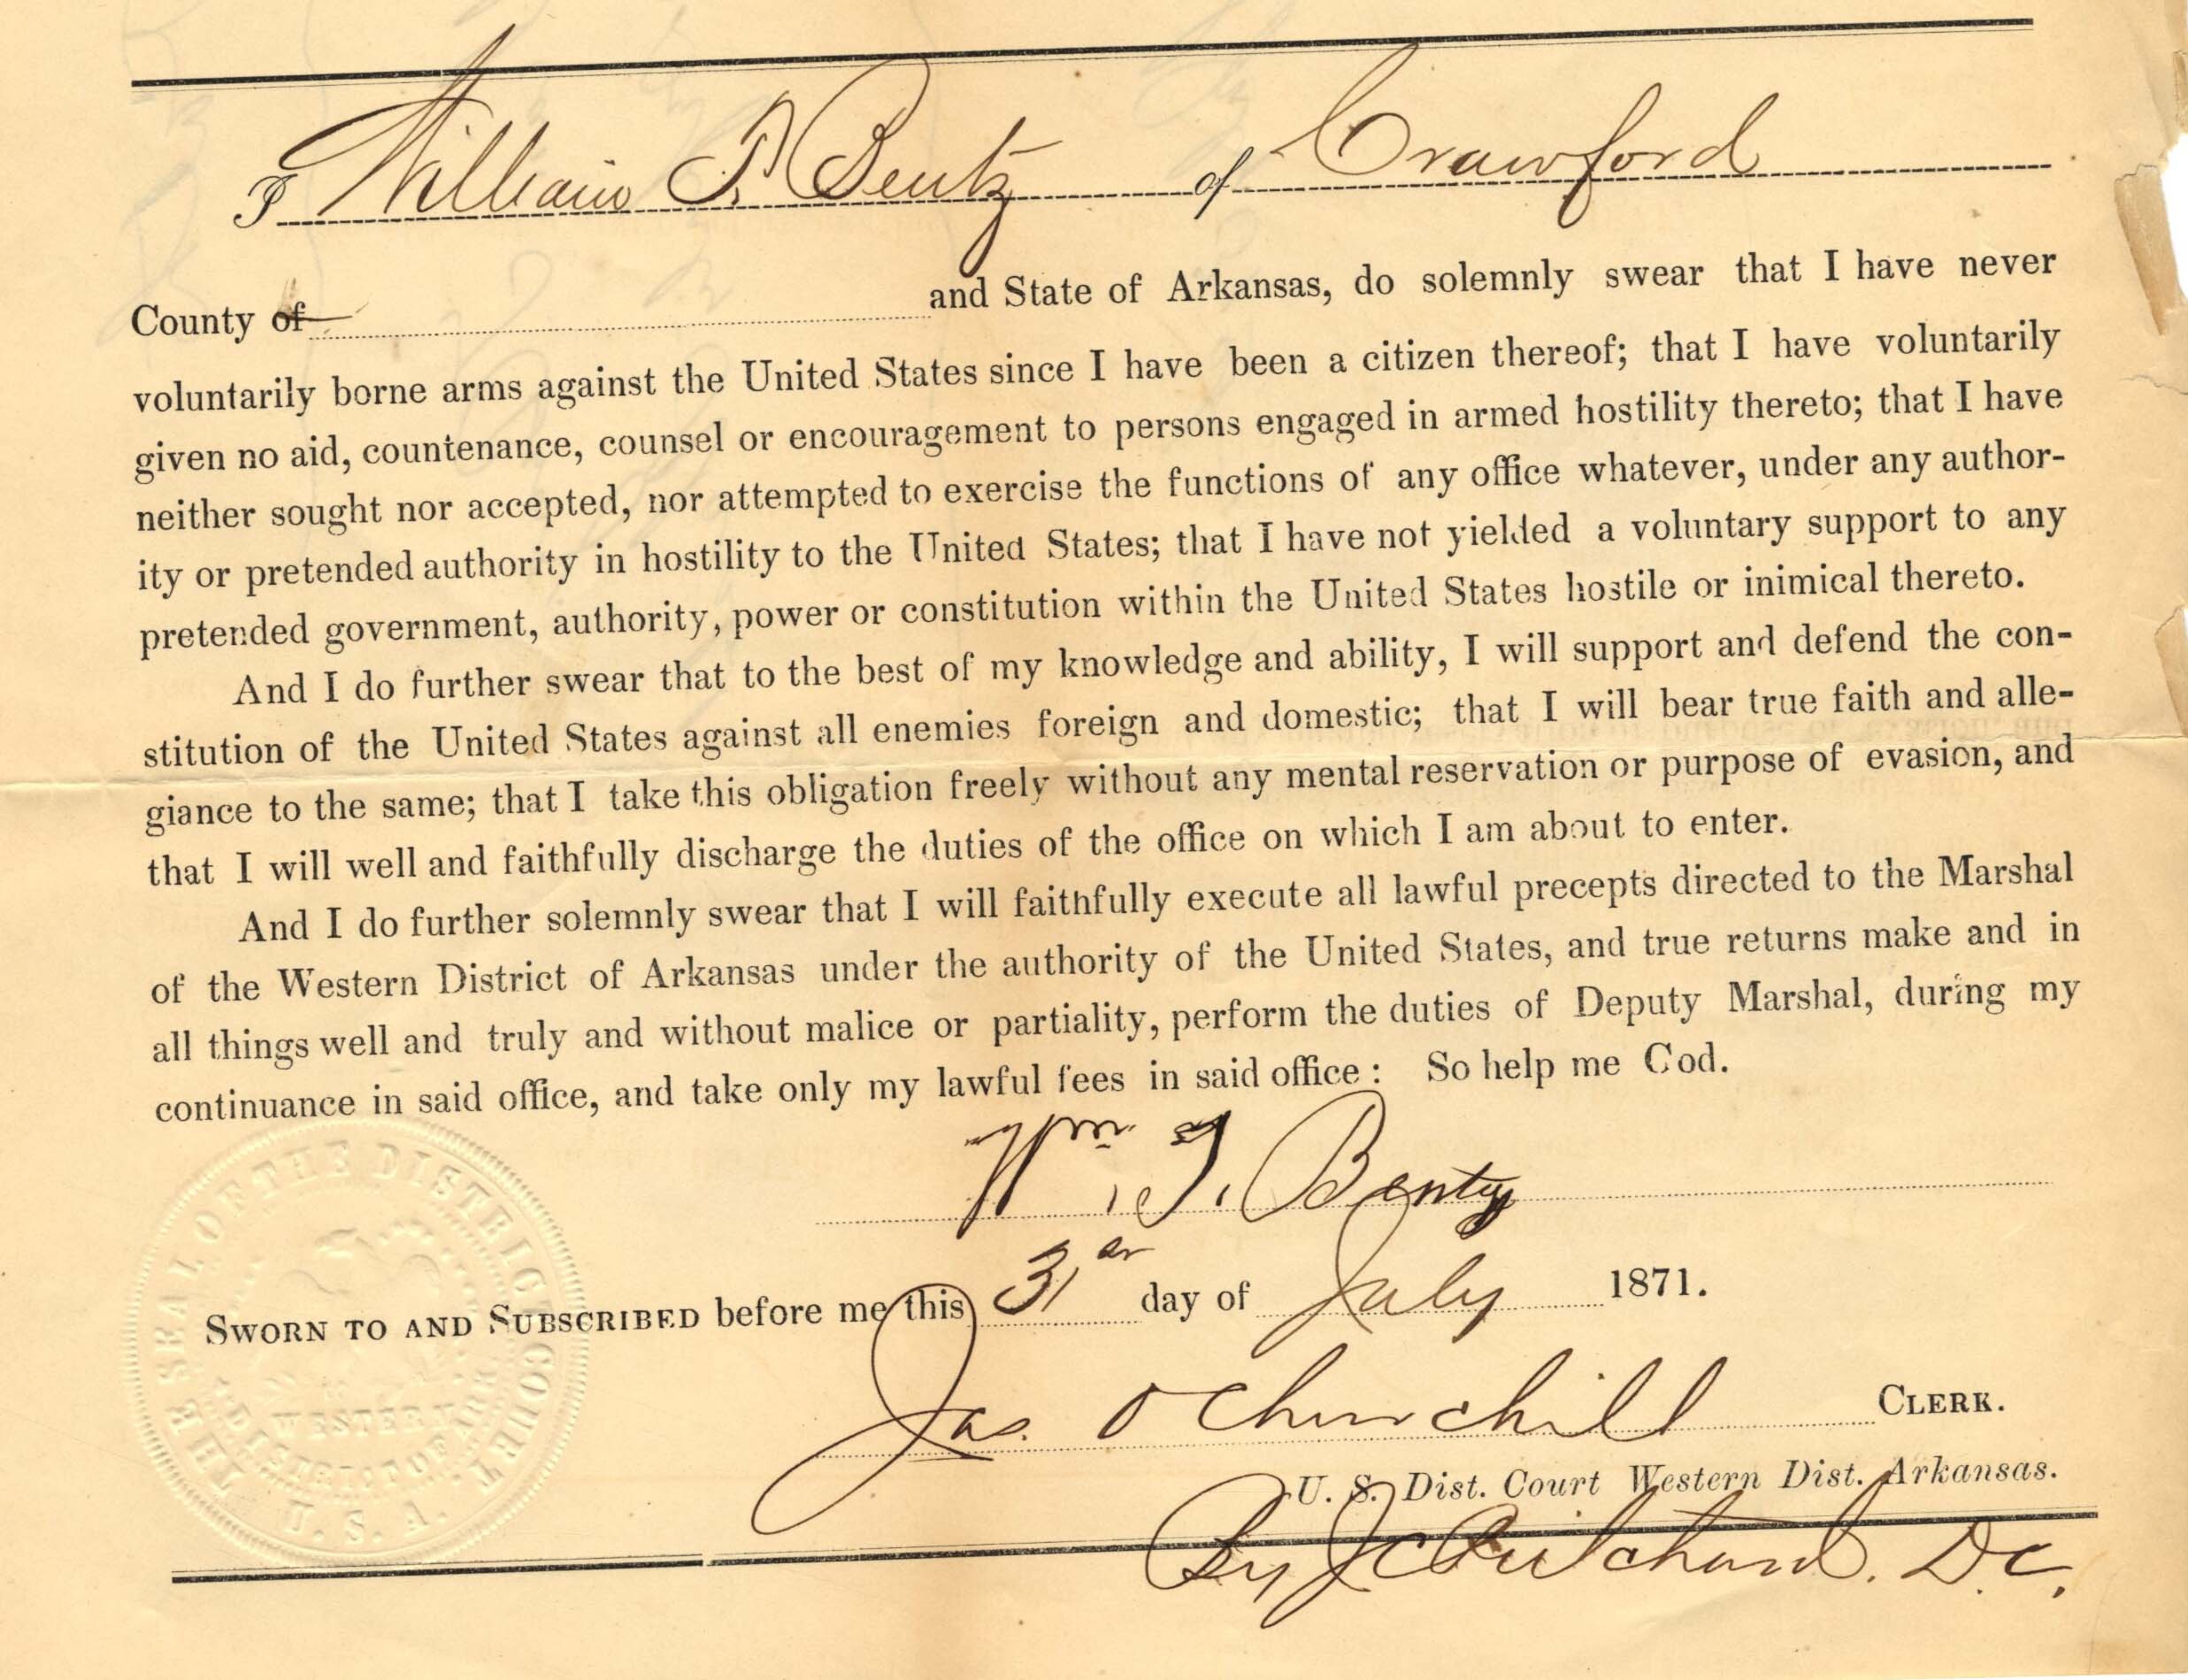 I William T. Bentz of Crawford
County of and State of Arkansas, do solemnly swear that I have never
voluntarily borne arms against the United States since I have been a citizen thereof; that I have voluntarily
given no aid, countenance, counsel or encouragement to persons engaged in armed hostility thereto; that I have
neither sought nor accepted, nor attempted to exercise the functions of any office whatever, under any author-
ity or pretended authority in hostility to the United States; that I have not yielded a voluntary support to any
pretended government, authority, power or constitution within the United States hostile or inimical thereto.
And I do further swear that to the best of my knowledge and ability, I will support and defend the con-
stitution of the United States against all enemies foreign and domestic; that I will bear true faith and alle-
giance to the same; that I take this obligation freely without any mental reservation or purpose of evasion, and
that I will well and faithfully discharge the duties of the office on which I am about to enter.
And I do further solemnly swear that I will faithfully execute all lawful precepts directed to the Marshal
of the Western District of Arkansas under the authority of the United States, and true returns make and in
all things well and truly and without malice or partiality, perform the duties of Deputy Marshal, during my
continuance in said office, and take only my lawful fees in said office: So help me God.
Wm. T. Bentz
SWORN TO AND SUBSCRIBED before me this 31 day of July 1871.
Jas. O Churchill CLERK.
U. S. Dist. Court Western Dist. Arkansas.
By J C Pritchard. D.C.
THE SEAL OF THE DISTRICT COURT U.S.A.
WESTERN
DISTRICT OF ARK